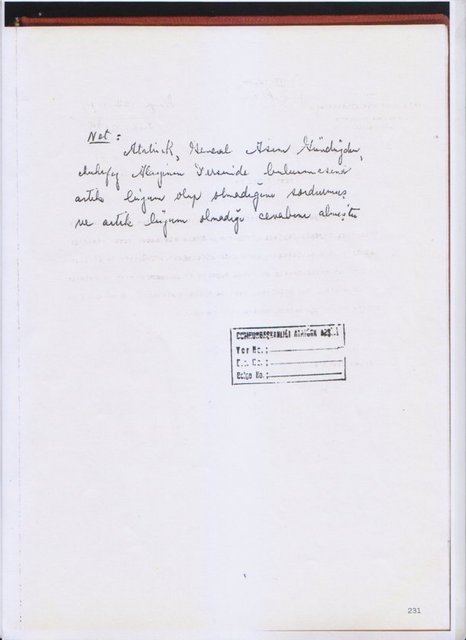 Not:
Atatürk, General Asım Gündüz'den,
Muhafız Alayının Dersimde bulunmasına
artık lüzum olup olmadığını sordurmuş
ve artık lüzum olmadığı cevabını almıştır
CUMHURBAŞKANLIĞI ATATÜRK ARŞİVİ
Yer No.:
No.:
Belge No.:
231